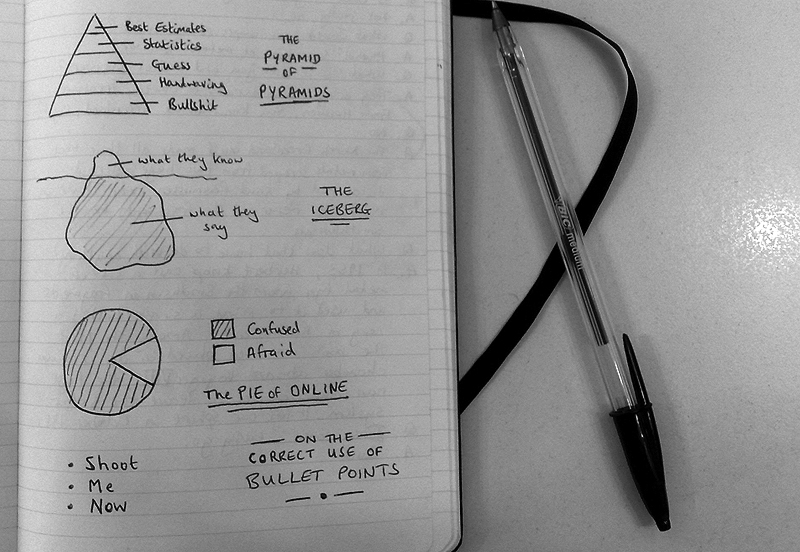 Best Estimates
Statistics
Guess
Handwaving
Bullshit
THE
PYRAMID
OF
PYRAMIDS
what they know
what they
say
THE
ICEBERG
Confused
Afraid
The PIE of ONLINE
• Shoot
• Me
• Now
ON THE
CORRECT USE OF
BULLET POINTS
medium